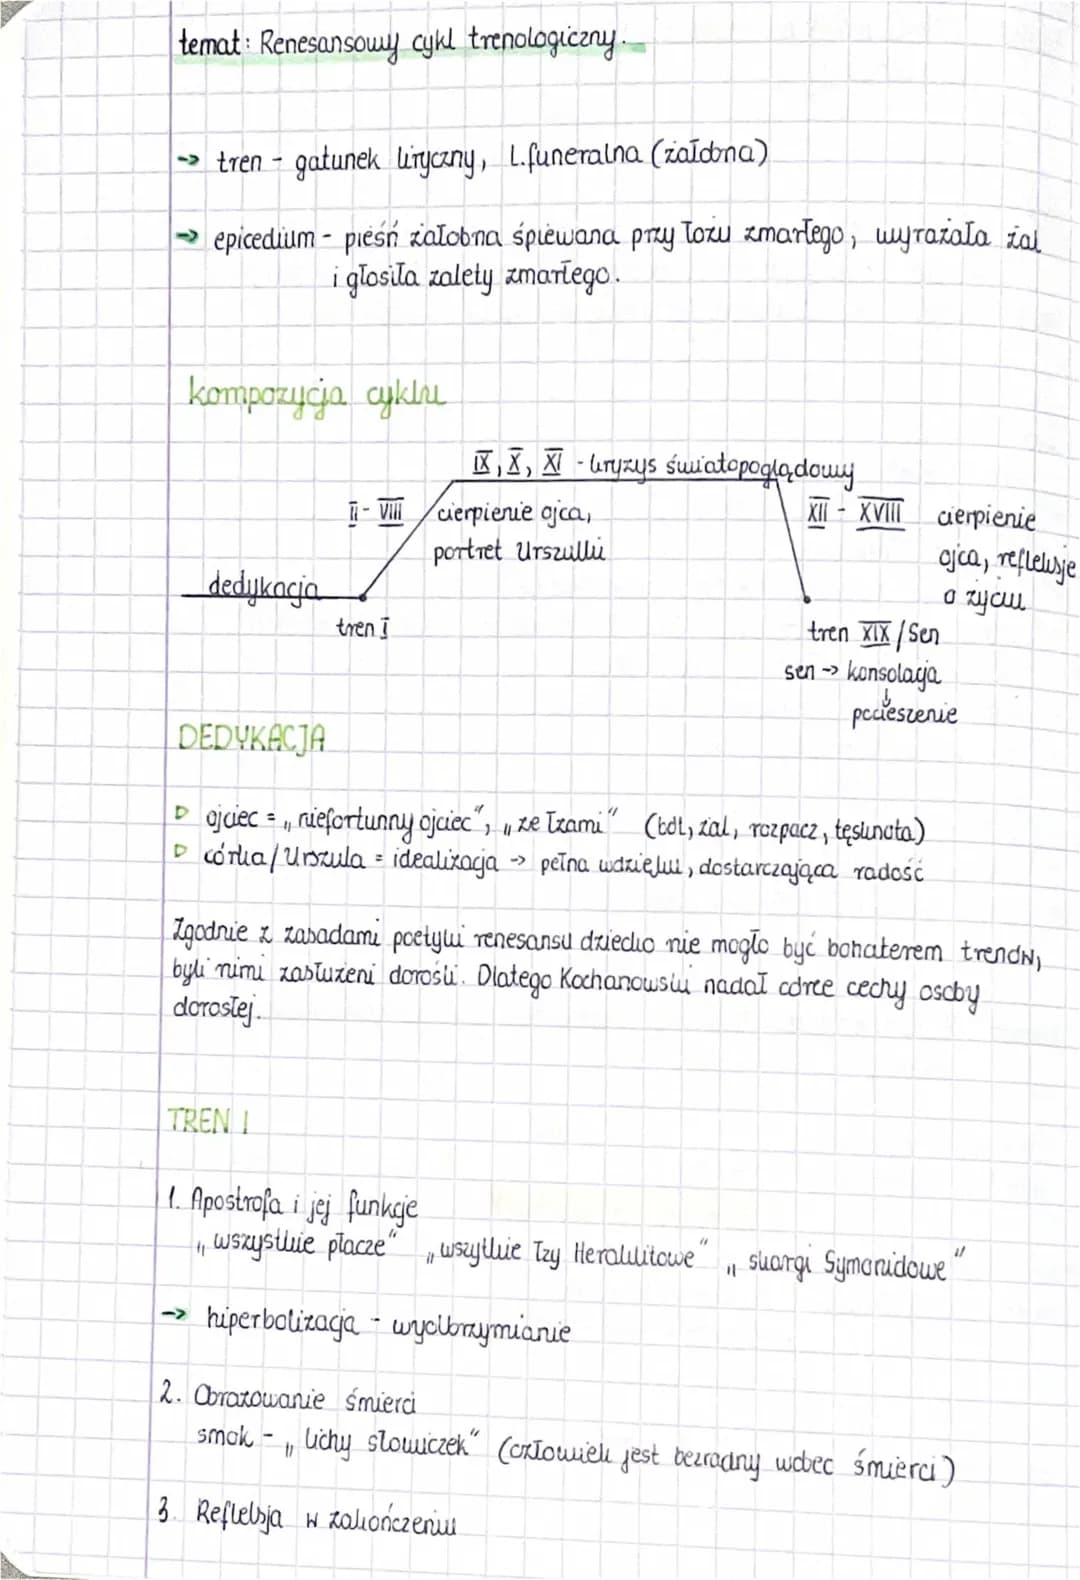 temat: Renesansowy cykl trenologiczny.
→ tren - gatunek liryczny, L.funeralna (żałobna)
→ epicedium - pieśń żałobna śpiewana przy łożu zmarłego, wyrażała żal
i głosiła zalety zmarłego.
kompozycja cyklu
IX, X, XI - kryzys światopoglądowy
II - VIII
cierpienie ojca,
portret Urszulki
XII - XVIII cierpienie
ojca, refleksje
o życiu
dedykacja
tren I
tren XIX / Sen
sen → konsolacja
↓
pocieszenie
DEDYKACJA
▷ ojciec = „niefortunny ojciec", „ze łzami" (ból, żal, rozpacz, tęsknota)
▷ córka/Urszula = idealizacja → pełna wdzięku, dostarczająca radość
Zgodnie z zasadami poetyki renesansu dziecko nie mogło być bohaterem trenów,
byli nimi zasłużeni dorośli. Dlatego Kochanowski nadał córce cechy osoby
dorosłej.
TREN I
1. Apostrofa i jej funkcje
„wszystkie płacze" „wszytkie łzy Heraklitowe" „skargi Symonidowe"
→ hiperbolizacja - wyolbrzymianie
2. Obrazowanie śmierci
smok - „lichy słowiczek" (człowiek jest bezradny wobec śmierci)
3. Refleksja w zakończeniu